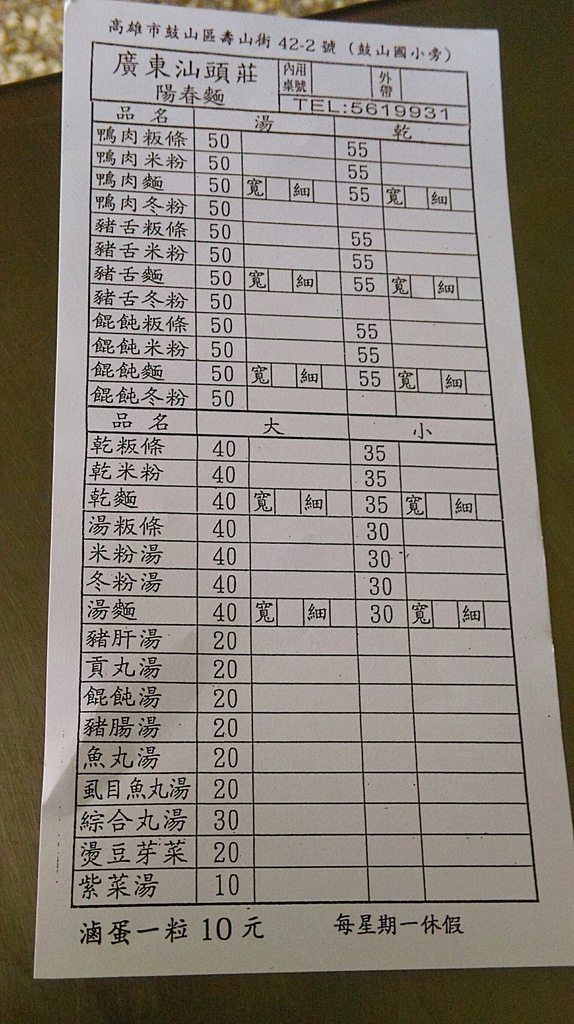 高雄市鼓山區壽山街 42-2 號 (鼓山國小旁)
廣東汕頭莊 內用桌號 外帶
陽春麵 TEL:5619931
品名 湯 乾
鴨肉粄條 50 55
鴨肉米粉 50 55
鴨肉麵 50 寬 細 55 寬 細
鴨肉冬粉 50
豬舌粄條 50 55
豬舌米粉 50 55
豬舌麵 50 寬 細 55 寬 細
豬舌冬粉 50
餛飩粄條 50 55
餛飩米粉 50 55
餛飩麵 50 寬 細 55 寬 細
餛飩冬粉 50
品名 大 小
乾粄條 40 35
乾米粉 40 35
乾麵 40 寬 細 35 寬 細
湯粄條 40 30
米粉湯 40 30
冬粉湯 40 30
湯麵 40 寬 細 30 寬 細
豬肝湯 20
貢丸湯 20
餛飩湯 20
豬腸湯 20
魚丸湯 20
虱目魚丸湯 20
綜合丸湯 30
燙豆芽菜 20
紫菜湯 10
滷蛋一粒 10 元 每星期一休假